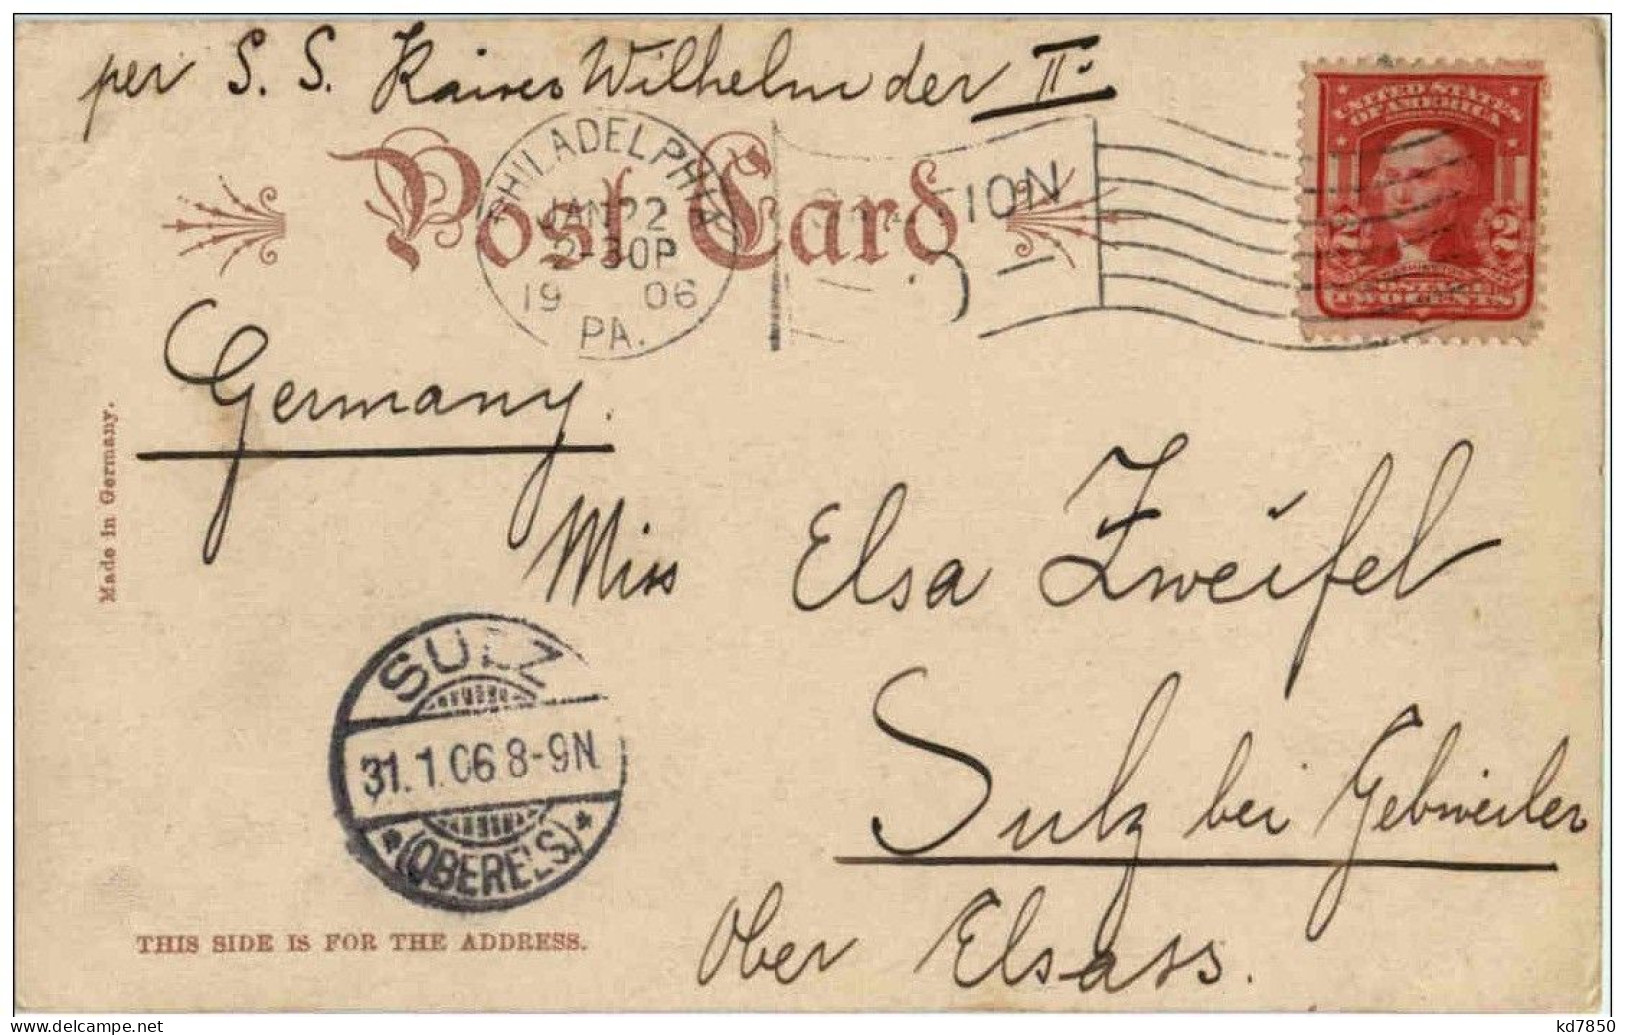 per S. S. Kaiser Wilhelm der II.
Post Card
PHILADELPHIA
JAN 22
2-30P
19 06
PA.
TION
UNITED STATES
OF AMERICA
2 2
POSTAGE
TWO CENTS
Germany.
Made in Germany.
Miss Elsa Zweifel
Sulz bei Gebweiler
Ober Elsass.
SULZ
31.1.06 8-9N
* (OBERELS.) *
THIS SIDE IS FOR THE ADDRESS.
www.delcampe.net
kd7850